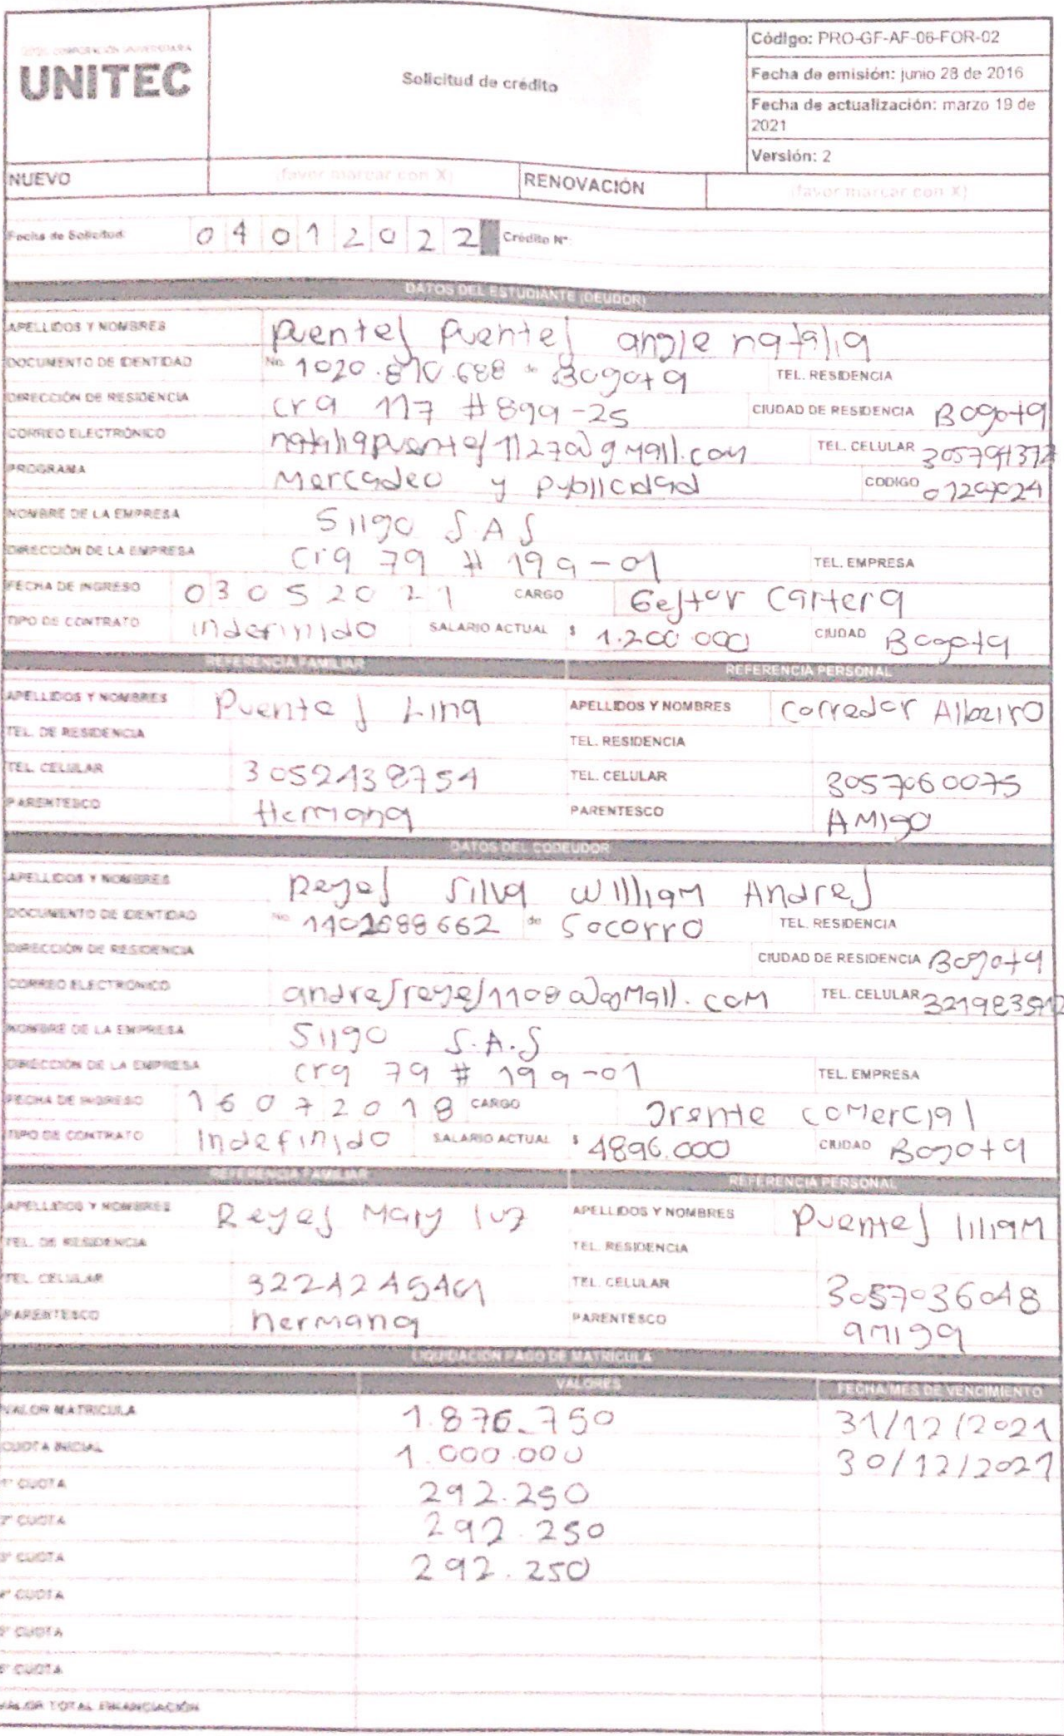 UNITEC
Solicitud de crédito
Código: PRO-GF-AF-06-FOR-02
Fecha de emisión: junio 28 de 2016
Fecha de actualización: marzo 19 de
2021
Versión: 2
NUEVO (favor marcar con X) RENOVACIÓN (favor marcar con X)
Fecha de Solicitud: 0 4 0 1 2 0 2 2 Crédito N°
DATOS DEL ESTUDIANTE (DEUDOR)
APELLIDOS Y NOMBRES Puentes Puentes angie natalia
DOCUMENTO DE IDENTIDAD No. 1020.810.688 de Bogota TEL. RESIDENCIA
DIRECCIÓN DE RESIDENCIA cra 117 #89a-25 CIUDAD DE RESIDENCIA Bogota
CORREO ELECTRÓNICO nataliapuentes1127@gmail.com TEL. CELULAR
PROGRAMA Mercadeo y publicidad CODIGO
NOMBRE DE LA EMPRESA Siigo S.A.S
DIRECCIÓN DE LA EMPRESA Cra 79 # 19a-01 TEL. EMPRESA
FECHA DE INGRESO 0 3 0 5 2 0 2 1 CARGO Gestor Cartera
TIPO DE CONTRATO indefinido SALARIO ACTUAL $ 1.200.000 CIUDAD Bogota
REFERENCIA FAMILIAR REFERENCIA PERSONAL
APELLIDOS Y NOMBRES Puentes Lina APELLIDOS Y NOMBRES Corredor Albeiro
TEL. DE RESIDENCIA TEL. RESIDENCIA
TEL. CELULAR 3052438754 TEL. CELULAR 3057060075
PARENTESCO Hermana PARENTESCO AMIgo
DATOS DEL CODEUDOR
APELLIDOS Y NOMBRES Reyes Silva William Andres
DOCUMENTO DE IDENTIDAD No. de Socorro TEL. RESIDENCIA
DIRECCIÓN DE RESIDENCIA CIUDAD DE RESIDENCIA Bogota
CORREO ELECTRÓNICO andresreyes1108@gmail.com TEL. CELULAR
NOMBRE DE LA EMPRESA Siigo S.A.S
DIRECCIÓN DE LA EMPRESA cra 79 # 19a-01 TEL. EMPRESA
FECHA DE INGRESO 1 6 0 7 2 0 1 8 CARGO Gerente comercial
TIPO DE CONTRATO Indefinido SALARIO ACTUAL $ 4896.000 CIUDAD Bogota
REFERENCIA FAMILIAR REFERENCIA PERSONAL
APELLIDOS Y NOMBRES Reyes Mary luz APELLIDOS Y NOMBRES Puentes liliam
TEL. DE RESIDENCIA TEL. RESIDENCIA
TEL. CELULAR TEL. CELULAR 3057036048
PARENTESCO hermana PARENTESCO amiga
LIQUIDACIÓN PAGO DE MATRICULA
VALORES FECHA/MES DE VENCIMIENTO
VALOR MATRICULA 1.876.750 31/12/2021
CUOTA INICIAL 1.000.000 30/12/2021
1° CUOTA 292.250
2° CUOTA 292.250
3° CUOTA 292.250
4° CUOTA
5° CUOTA
6° CUOTA
VALOR TOTAL FINANCIACIÓN